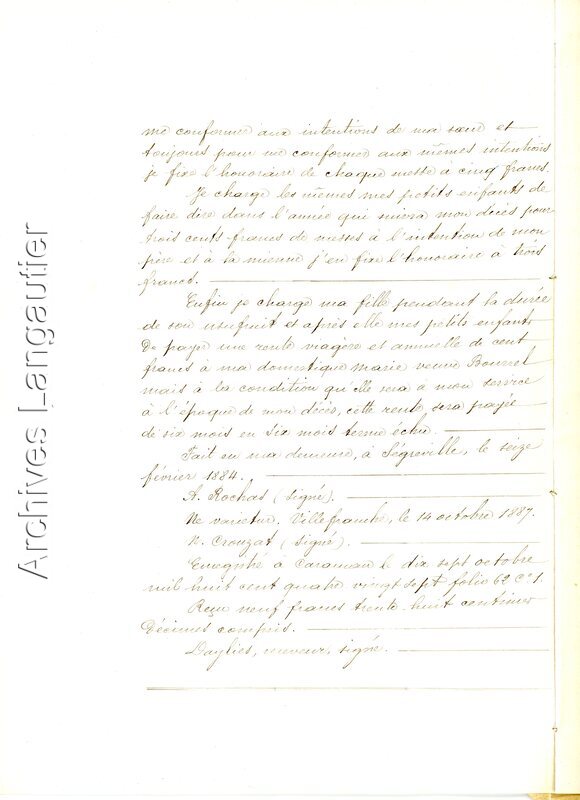 me conformer aux intentions de ma sœur et
toujours pour me conformer aux mêmes intentions
je fixe l'honoraire de chaque messe à cinq francs.
Je charge les mêmes mes petits enfants de
faire dire dans l'année qui suivra mon décès pour
trois cents francs de messes à l'intention de mon
père et à la mienne j'en fixe l'honoraire à trois
francs.
Enfin je charge ma fille pendant la durée
de son usufruit et après elle mes petits enfants
de payer une rente viagère et annuelle de cent
francs à ma domestique marie veuve Bourrel
mais à la condition qu'elle sera à mon service
à l'époque de mon décès, cette rente sera payée
de six mois en six mois terme échu.
Fait en ma demeure, à Ségreville, le seize
février 1884.
A. Rochas (signé).
Ne varietur, Villefranche, le 14 octobre 1887.
Crouzat (signé).
Enregistré à Caraman le dix sept octobre
mil huit cent quatre vingt sept folio 62 C° 1.
Reçu neuf francs trente huit centimes
décimes compris.
Daylies, receveur, signé.
Archives Langautier